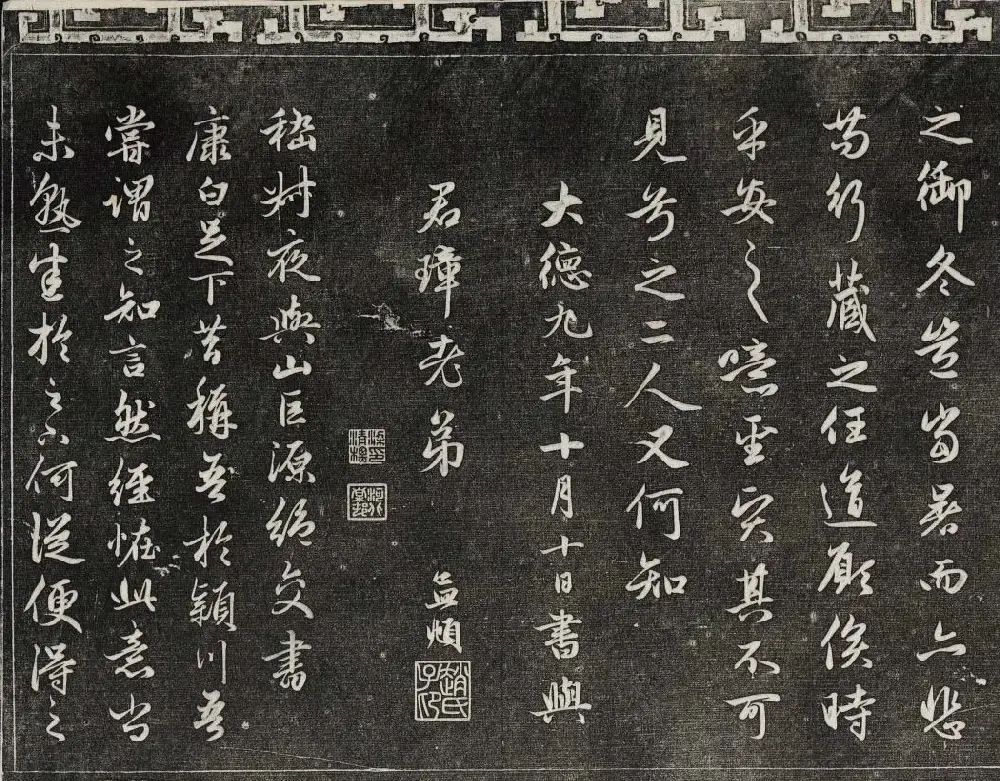 之御冬豈當暑而亦悲
苟行藏之任道願俟時
乎安之噫聖賢其不可
見兮之二人又何知
大德九年十月十日書與
君璋老弟 孟頫
趙氏子昂
梁印清標
嵇叔夜與山巨源絕交書
康白足下昔稱吾於潁川吾
嘗謂之知言然經怪此意尚
未熟悉於足下何從便得之